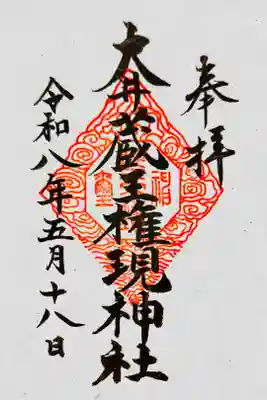 奉拝
大井蔵王権現神社
令和八年五月十八日